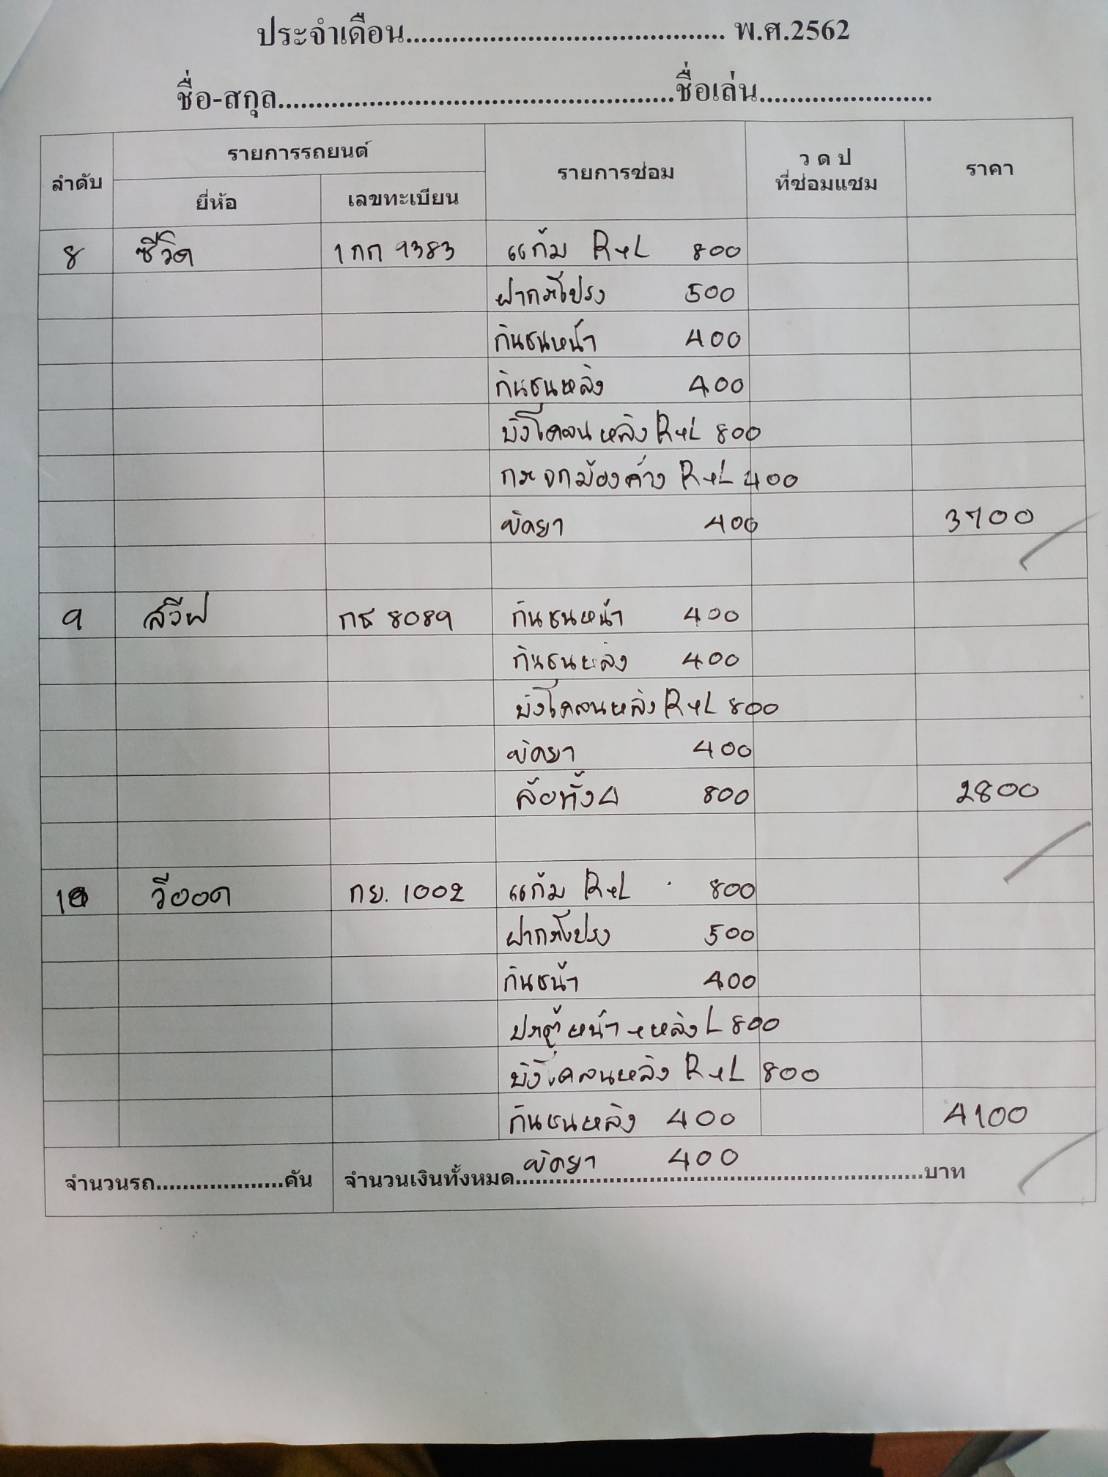 ประจำเดือน.......................................... พ.ศ.2562
ชื่อ-สกุล.....................................................ชื่อเล่น.......................
ลำดับ รายการรถยนต์ รายการซ่อม ว ด ป ที่ซ่อมแซม ราคา
ยี่ห้อ เลขทะเบียน
8 ซีวิค 1กก 9383 แก้ม R+L 800
ฝากระโปรง 500
กันชนหน้า 400
กันชนหลัง 400
บังโคลนหลัง R+L 800
กระจกมองข้าง R+L 400
ขัดยา 400 3700
9 สวีฟ กธ 8089 กันชนหน้า 400
กันชนหลัง 400
บังโคลนหลัง R+L 800
ขัดยา 400
ล้อทั้ง4 800 2800
10 วีออด กย. 1002 แก้ม R+L 800
ฝากระโปรง 500
กันชน้า 400
ประตูหน้า+หลัง L 800
บังโคลนหลัง R+L 800
กันชนหลัง 400 4100
ขัดยา 400
จำนวนรถ...................คัน จำนวนเงินทั้งหมด..............................................................บาท